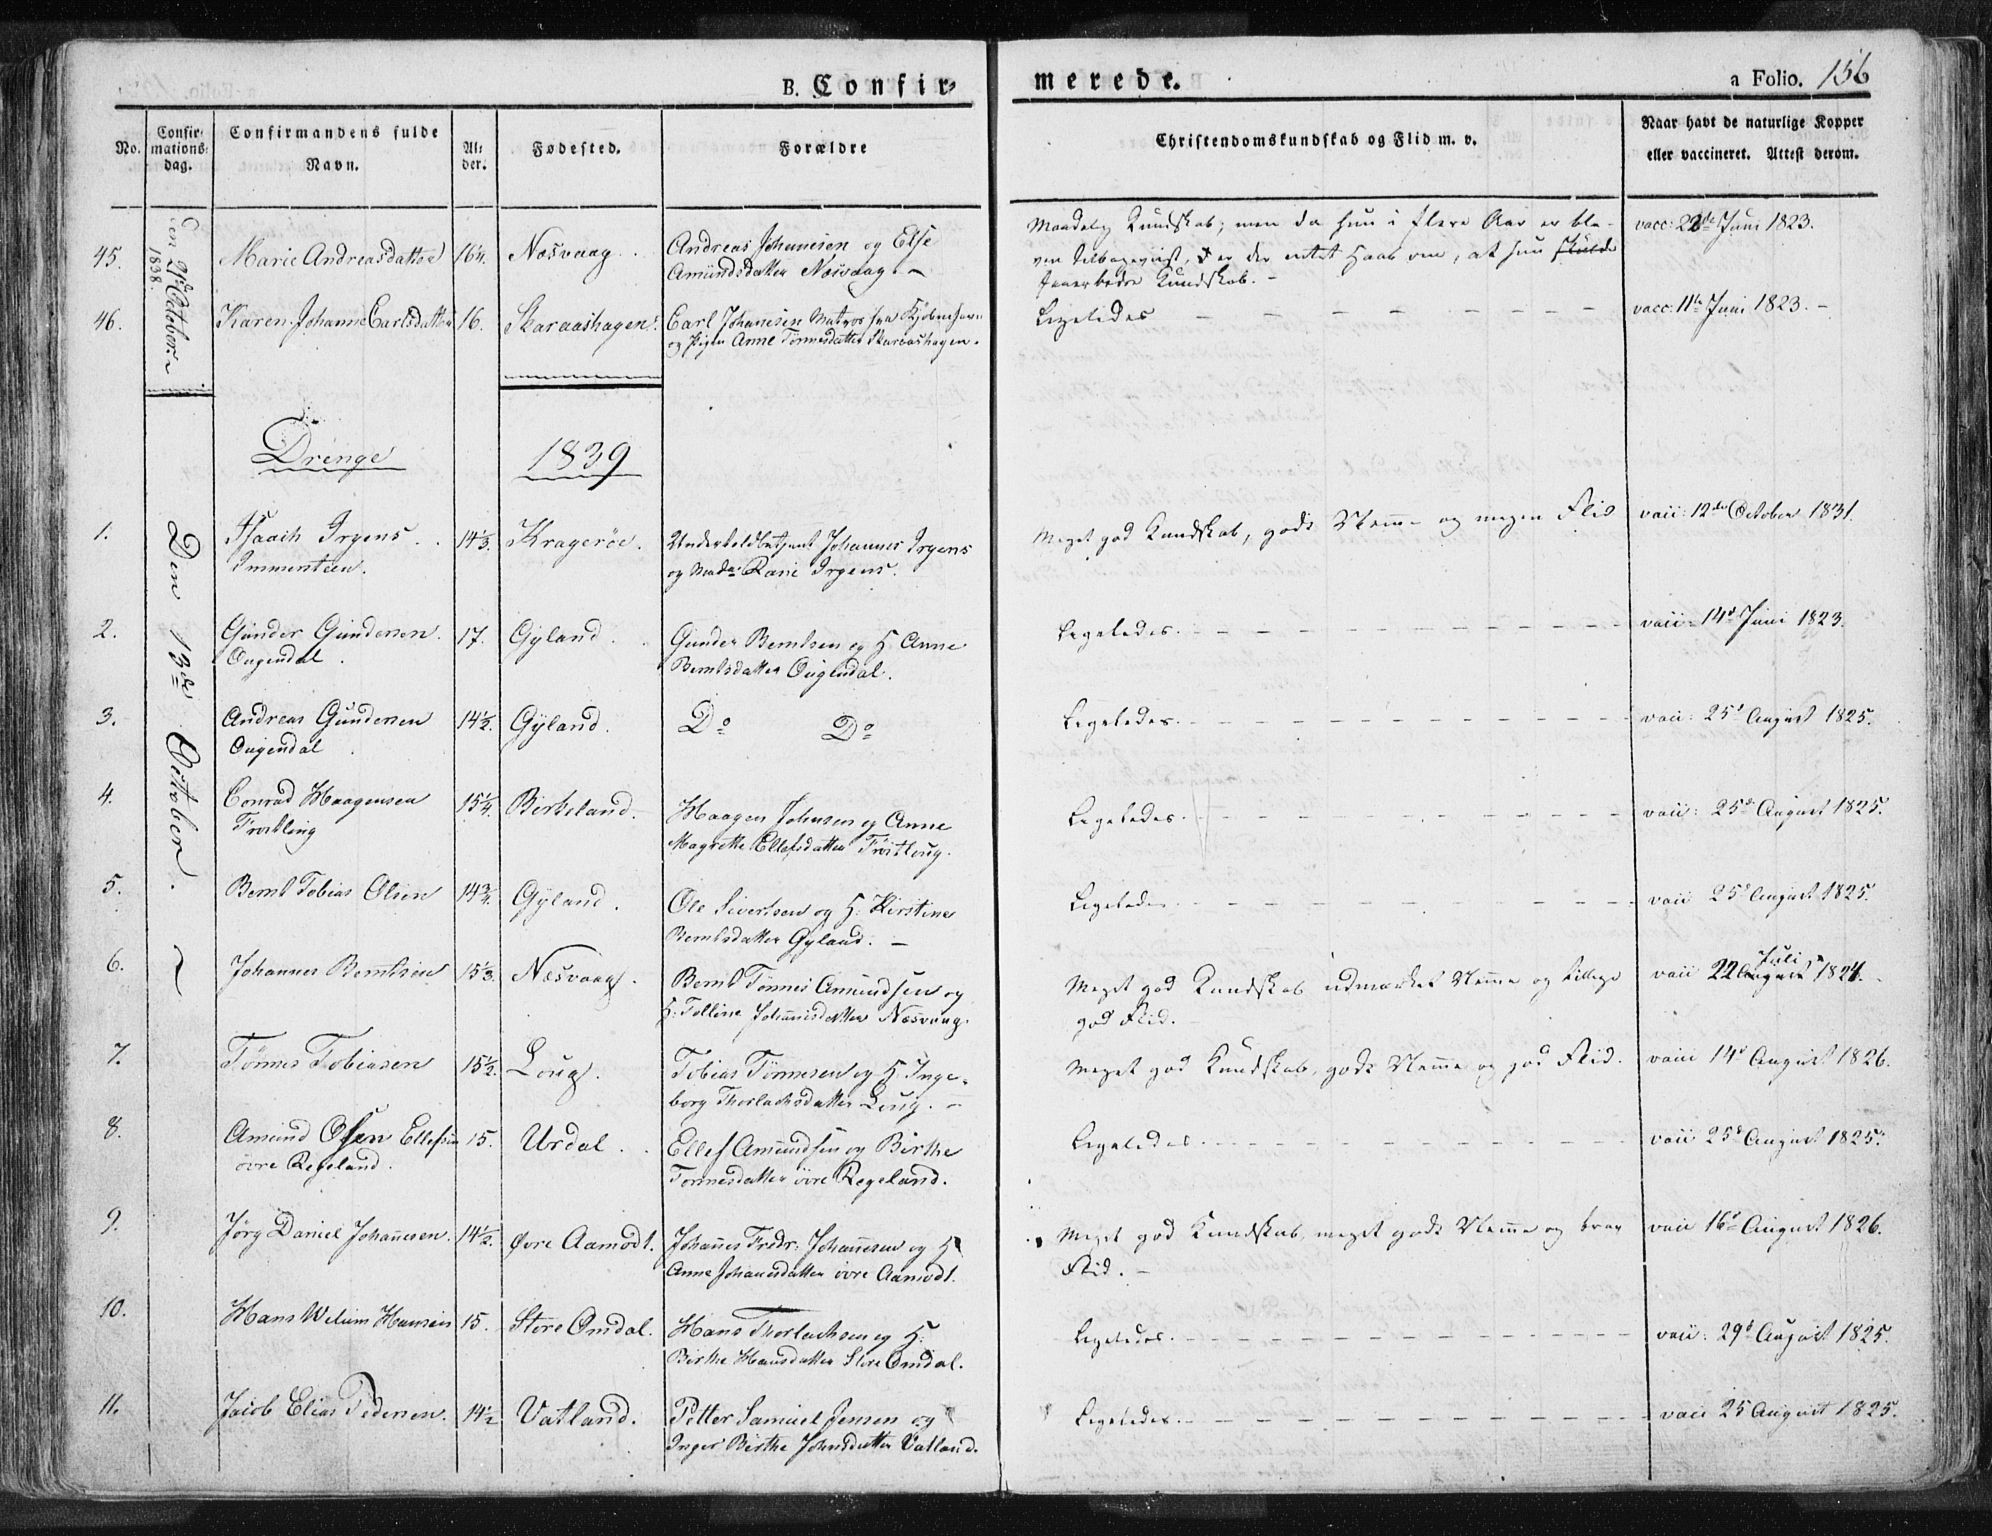 B. Confir-
merede.
a Folio. 156
No.
Confir-
mations-
dag.
Confirmandens fulde
Navn.
Al-
der.
Fødested.
Forældre
Christendomskundskab og Flid m. v.
Naar havt de naturlige Kopper
eller vaccineret. Attest derom.
Den 21de October
1838.
45. Marie Andreasdatter 16¼. Næsvaag. Andreas Johanesen og Else
Amundsdatter Næsvaag. –
Maadelig Kundskab; men da hun i flere Aar er ble-
ven tilbageviist, er der intet Haab om, at hun skulde
faaer bedre Kundskab. –
vacc: 22de Juni 1823.
46. Karen Johanne Carlsdatter 16. Skaraashagen. Carl Johanesen Matros fra Kjøbenhavn
og Pigen Anne Tønnesdatter Skaraashagen.
Ligeledes – – – – – – – vacc: 11te Juni 1823. –
Drenge 1839
Den 13de October.
1. Isaach Irgens 14⅓. Kragerøe. Undertoldbetjent Johannes Irgens
Immenteen. og Mada: Irgens.
Meget god Kundskab, godt Nemme og megen Flid vacc: 12te October 1831.
2. Gunder Gundersen 17. Gyland. Gunder Berntsen og H. Anne
Ougendal. Berntsdatter Ougendal.
Ligeledes. – – – – – – – vacc: 14d Juni 1823.
3. Andreas Gundersen 14½. Gyland. Do Do
Ougendal
Ligeledes. – – – – – – – vacc: 25d August 1825.
4. Conrad Haagensen 15¼. Birkeland. Haagen Johnsen og Anne
Frøitling Magrethe Ellefsdatter Frøitling.
Ligeledes. – – – – – – – vacc: 25d August 1825.
5. Bernt Tobias Olsen 14¾. Gyland. Ole Sivertsen og H: Kirstine
Berntsdatter Gyland. –
Ligeledes – – – – – – – vacc 25d August 1825.
6. Johannes Berntsen 15⅓. Næsvaag. Bernt Tønnes Amundsen og
H: Talline Johannisdatter Næsvaag.
Meget god Kundskab udmærket Nemme og tillige
god Flid.
Juli
vacc 22 August 1824.
7. Tønnes Tobiasen 15½. Loug. Tobias Tønnesen og H Inge-
borg Thorlachsdatter Loug. –
Meget god Kundskab, godt Nemme og god Flid. vacc 14d August 1826.
8. Amund Olsen Ellefsen 15. Urdal. Ellef Amundsen og Birthe
øvre Regeland. Tønnesdatter øvre Regeland.
Ligeledes – – – – – – – vacc 25d August 1825.
9. Jørg Daniel Johannesen. 14½. Øvre Aamodt. Johannes Fredr: Johannesen og H
Anne Johannesdatter øvre Aamodt.
Meget god Kundskab, meget godt Nemme og brav
Flid. –
vacc 16d August 1826.
10. Hans Welum Hansen 15. Store Omdal. Hans Thorlachsen og H:
Birthe Hansdatter Store Omdal.
Ligeledes. – – – – – – – vacc: 29d August 1825.
11. Jacob Elias Pedersen. 14½ Vatland. Petter Samuel Jensen og
Inger Birthe Johnsdatter Vatland.
Ligeledes. – – – – – – – vacc 25 August 1825.